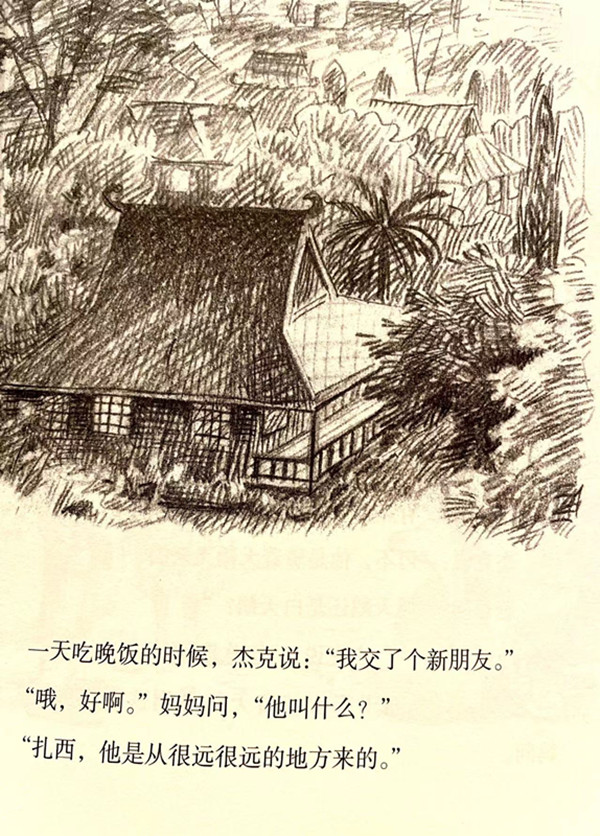 一天吃晚饭的时候，杰克说：“我交了个新朋友。”
“哦，好啊。”妈妈问，“他叫什么？”
“扎西，他是从很远很远的地方来的。”